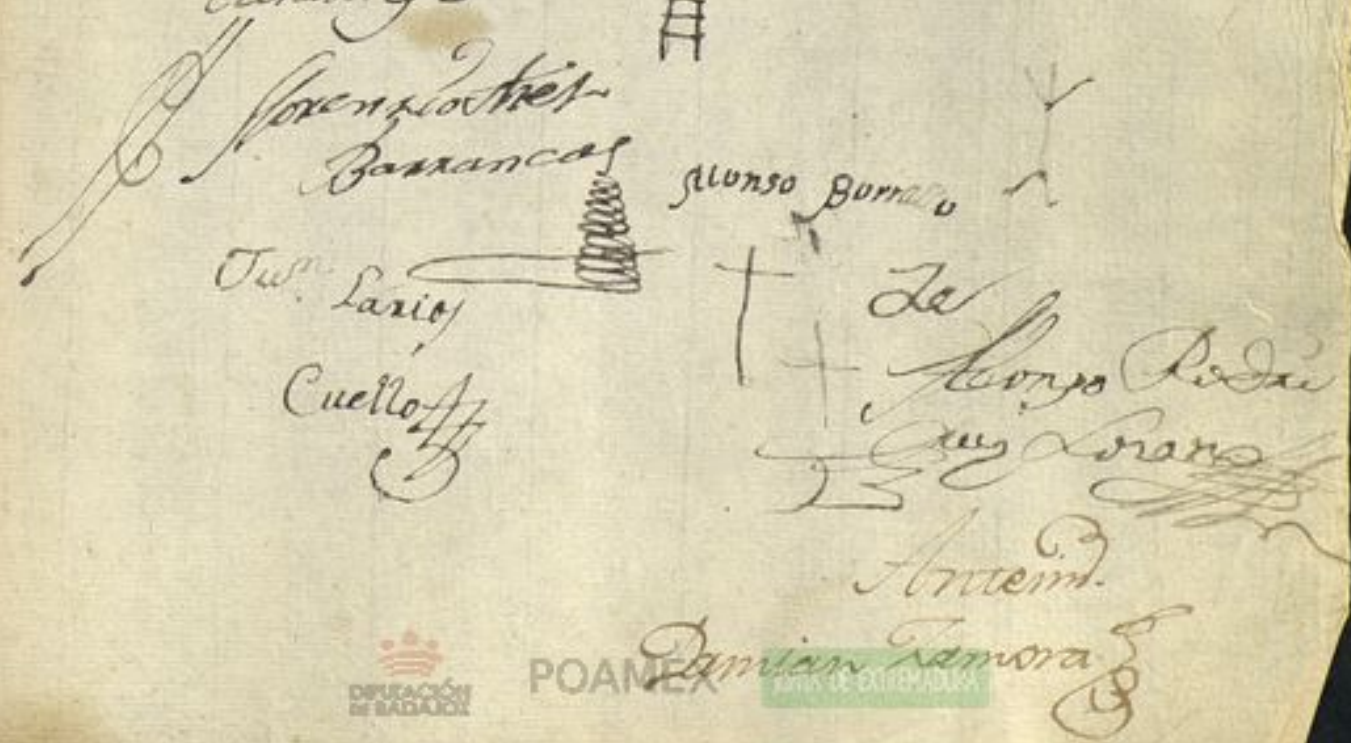 Lorenzo
Barrancas
Alonso Borrallo
Jun. Larios
Cuello
De
Alonso Rodri
Ruiz Lozano
Antemi
Damian Zamora
DIPUTACIÓN
DE BADAJOZ
POAMEX
JUNTA DE EXTREMADURA